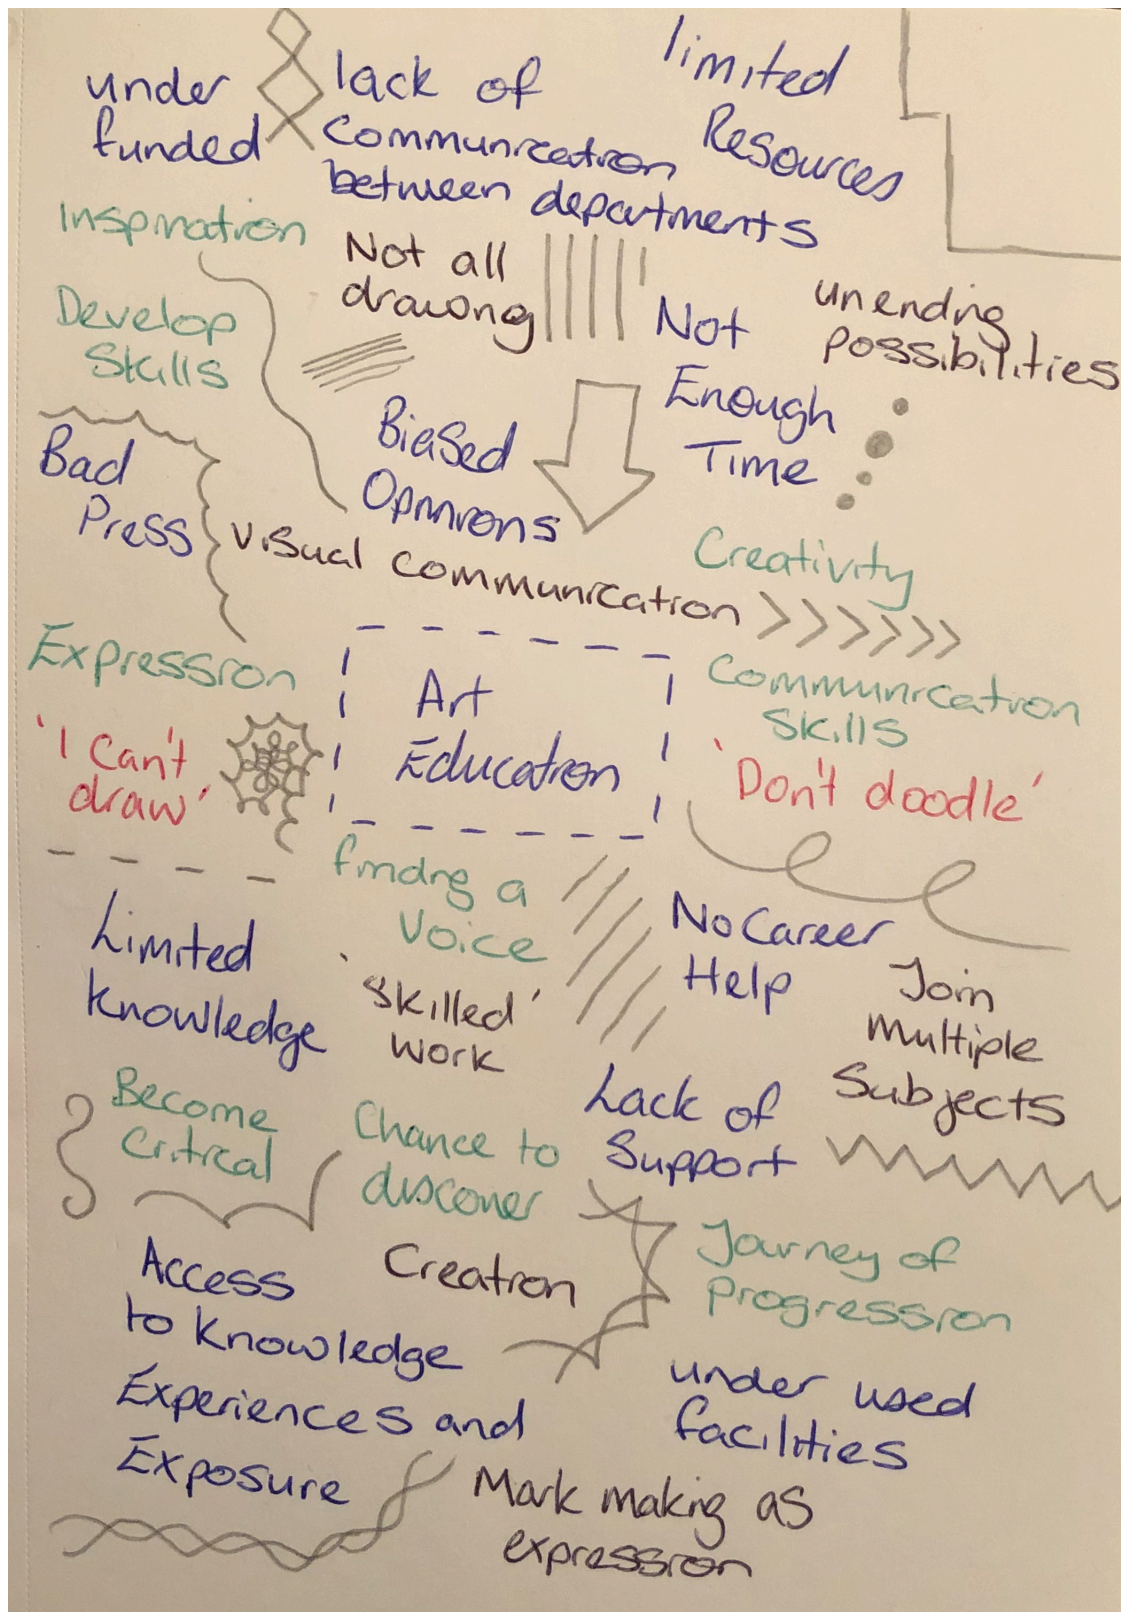 under
funded
lack of
communication
between departments
limited
Resources
Inspiration
Not all
drawing
unending
possibilities
Develop
Skills
Not
Enough
Time
Biased
Opinions
Bad
Press
Visual communication
Creativity
Expression
Art
Education
Communication
Skills
'I can't
draw'
'Don't doodle'
finding a
voice
Limited
knowledge
'skilled'
work
No Career
Help
Join
multiple
Subjects
Become
Critical
Chance to
discover
Lack of
Support
Access
to knowledge
Experiences and
Exposure
Creation
Journey of
Progression
under used
facilities
Mark making as
expression